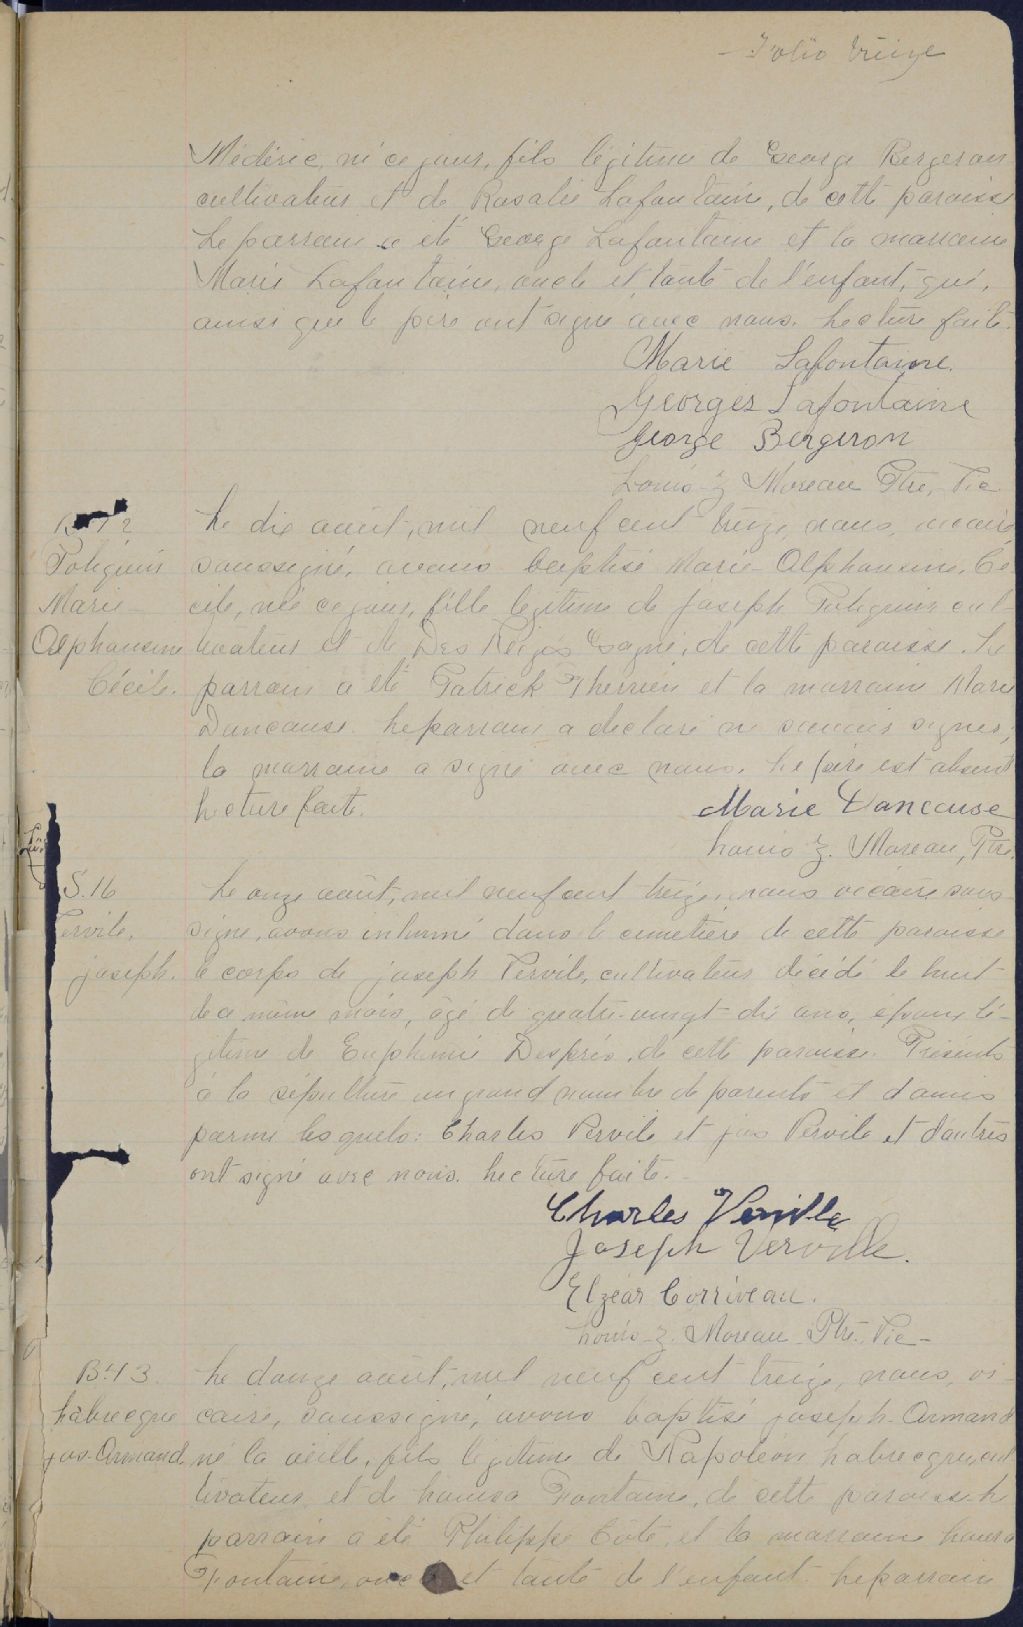 Folio treize
Médéric, né ce jour, fils légitime de George Bergeron
cultivateur et de Rosalie Lafontaine, de cette paroisse
Le parrain a été George Lafontaine et la marraine
Marie Lafontaine, oncle et tante de l'enfant, qui,
ainsi que le père ont signé avec nous. Lecture faite.
Marie Lafontaine.
Georges Lafontaine
George Bergeron
Louis-Z Moreau Ptre, Vic
Le dix août, mil neuf cent treize, nous, vicaire
Poliquin
soussigné, avons baptisé Marie-Alphonsine, Cé
Marie-
cile, née ce jour, fille légitime de Joseph Poliquin cul-
Alphonsine
tivateur et de Des Neiges Gagné, de cette paroisse. Le
Cécile.
parrain a été Patrick Therrien et la marraine Marie
Dancause. Le parrain a déclaré ne savoir signer;
la marraine a signé avec nous. Le père est absent
Lecture faite.
Marie Dancause
Louis Z. Moreau, Ptre.
S. 16
Le onze août, mil neuf cent treize, nous vicaire sous-
Vervile,
signé, avons inhumé dans le cimetière de cette paroisse
joseph.
le corps de joseph Vervile, cultivateur décédé le huit
de ce même mois, âgé de quatre-vingt-dix ans, époux lé-
gitime de Euphémie Desprès, de cette paroisse. Présents
à la sépulture un grand nombre de parents et d'amis
parmi lesquels: Charles Vervile et jos Vervile et d'autres
ont signé avec nous. Lecture faite.-
Charles Verville
Joseph Verville.
Elzéar Corriveau.
Louis-Z. Moreau Ptre. Vic-
B. 43.
Le douze août, mil neuf cent treize, nous, vi-
Labrecque
caire, soussigné, avons baptisé joseph-Armand
jos-Armand
né la veille, fils légitime de Napoléon Labrecque, cul-
tivateur, et de Louisa Fontaine, de cette paroisse. Le
parrain a été Philippe Côté, et la marraine Louisa
Fontaine, oncle et tante de l'enfant. Le parrain